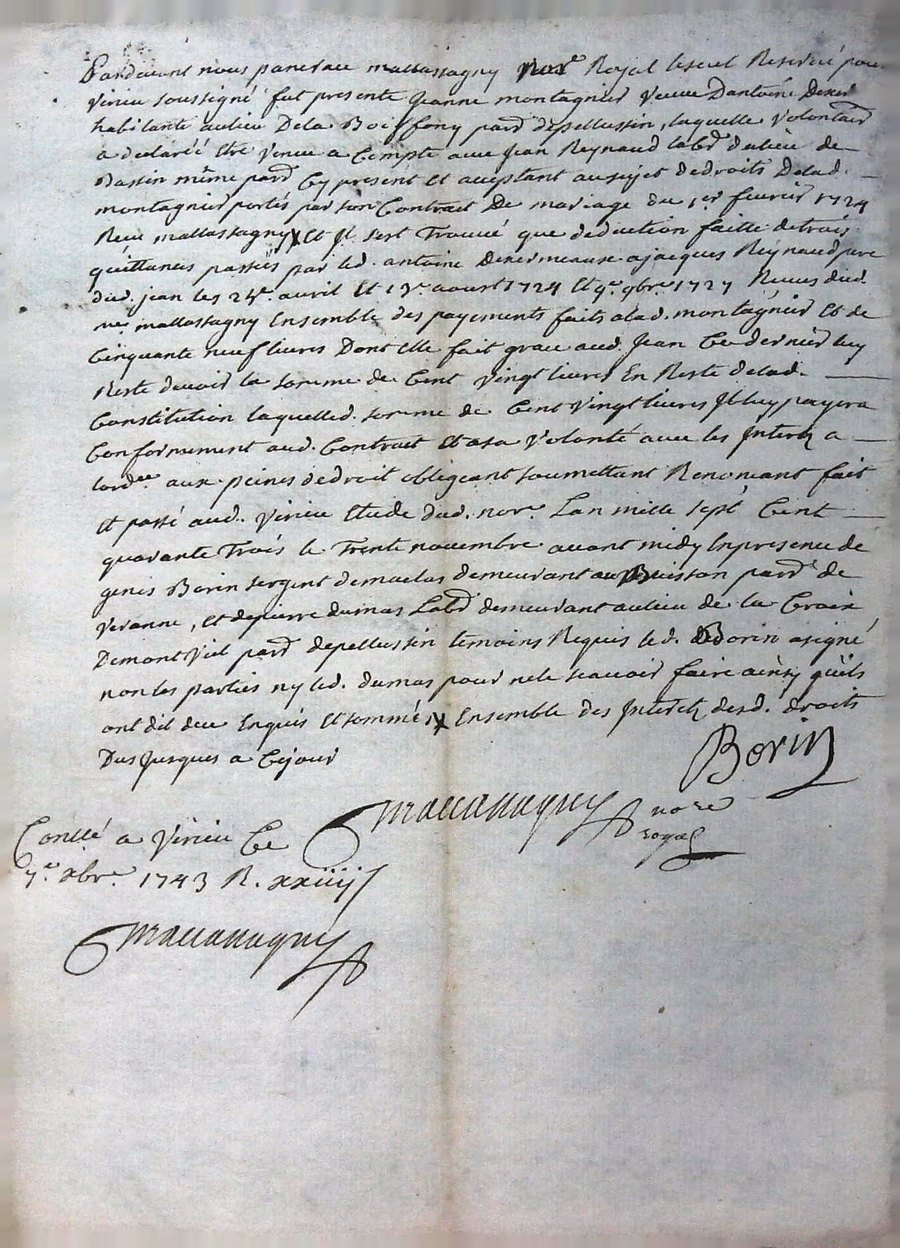 Pardevant nous pancrace mattassagny no.re Royal lescul Reservé pour
virieu soussigné fut presente Jeanne montagnier veuve Dantoine
habitante au lieu Dela par.se depellussin, laquelle volontair.
a declaréé etre venue a Compte avec Jean Reynaud lab.r dulieu de
même par.se Cy present et aceptant ausujet dedroits Delad.
montagnier portés par son Contrat De mariage du 1.er fevrier 1724
Receu mattassagny X Et Il sest Trouvé que deduction faitte detrois
quittances passés par led. antoine a jacques Reynaud pere
dud. jean les 24.e avril Et 13.e aoust 1724 Et 9.e 9bre 1727 Receues dud.
n.re mattassagny Ensemble des payements faits alad. montagnier Et de
Cinquante neuf livres Dont elle fait grace aud. Jean Ce dernier luy
Reste devoir la somme de Cent vingt livres En Reste delad.
Constitution laquelled. somme de Cent vingt livres Il luy payera
Conformement aud. Contrat Et asa volonté avec les Interets a
lord.re aux peines dedroit obligeant soumettant Renoncant fait
Et passé aud. virieu Etude dud. nore. Lan mille sept Cent
quarante Trois le Trente novembre avant midy Enpresence de
genis Borin sergent demaclas demeurant au Buisson par.se de
veranne, et depierre dumas Lab.r demeurant aulieu de la Croix
Demont viol par.se depellussin temoins Requis led. Borin asigné
non les parties ny led. dumas pour nele scavoir faire ainsy quils
ont dit deu Enquis Et sommé X Ensemble des Interets desd. droits
Dus Jusques a Cejour
Borin
Mattassagny no.re
royal
Conllé a Virieu Ce
7.e xbre. 1743 R. xxiiij s
Mattassagny